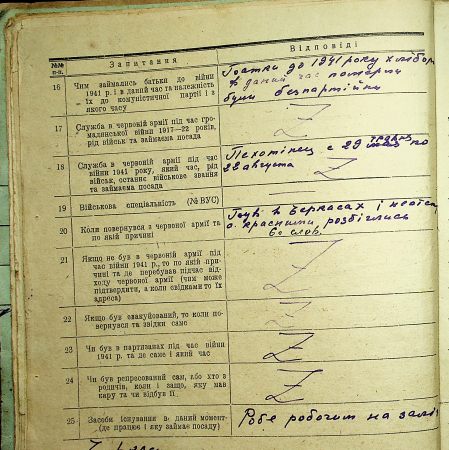 №№ п-п. Запитання Відповіді
16 Чим займались батьки до війни
1941 р. і в даний час та належність
їх до комуністичної партії і з
якого часу
до 1941 року
в даний час померли
були безпартійни
17 Служба в червоній армії під час гро-
мадянської війни 1917—22 років,
рід військ та займаєма посада
Z
18 Служба в червоній армії під час
війни 1941 року, який час, рід
військ, останнє військове звання
та займаєма посада
Пехотінец с 29 по
28 августа
19 Військова спеціальність (№ ВУС)
20 Коли повернувся з червоної армії та
по якій причині
в Черкасах і
розбіглись
21 Якщо не був в червоній армії під
час війни 1941 р., то по якій при-
чині та де перебував підчас від-
ходу червоної армії (чим може
підтвердити, а коли свідками то їх
адреса)
Z
22 Якщо був евакуйований, то коли по-
вернувся та звідки саме
Z
23 Чи був в партизанах під час війни
1941 р. та де саме і який час
Z
24 Чи був репресований сам, або хто з
родичів, коли і защо, яку мав
кару та чи відбув її
Z
25 Засоби існування в даний момент-
(де працює і яку займає посаду)
Робе робочим на